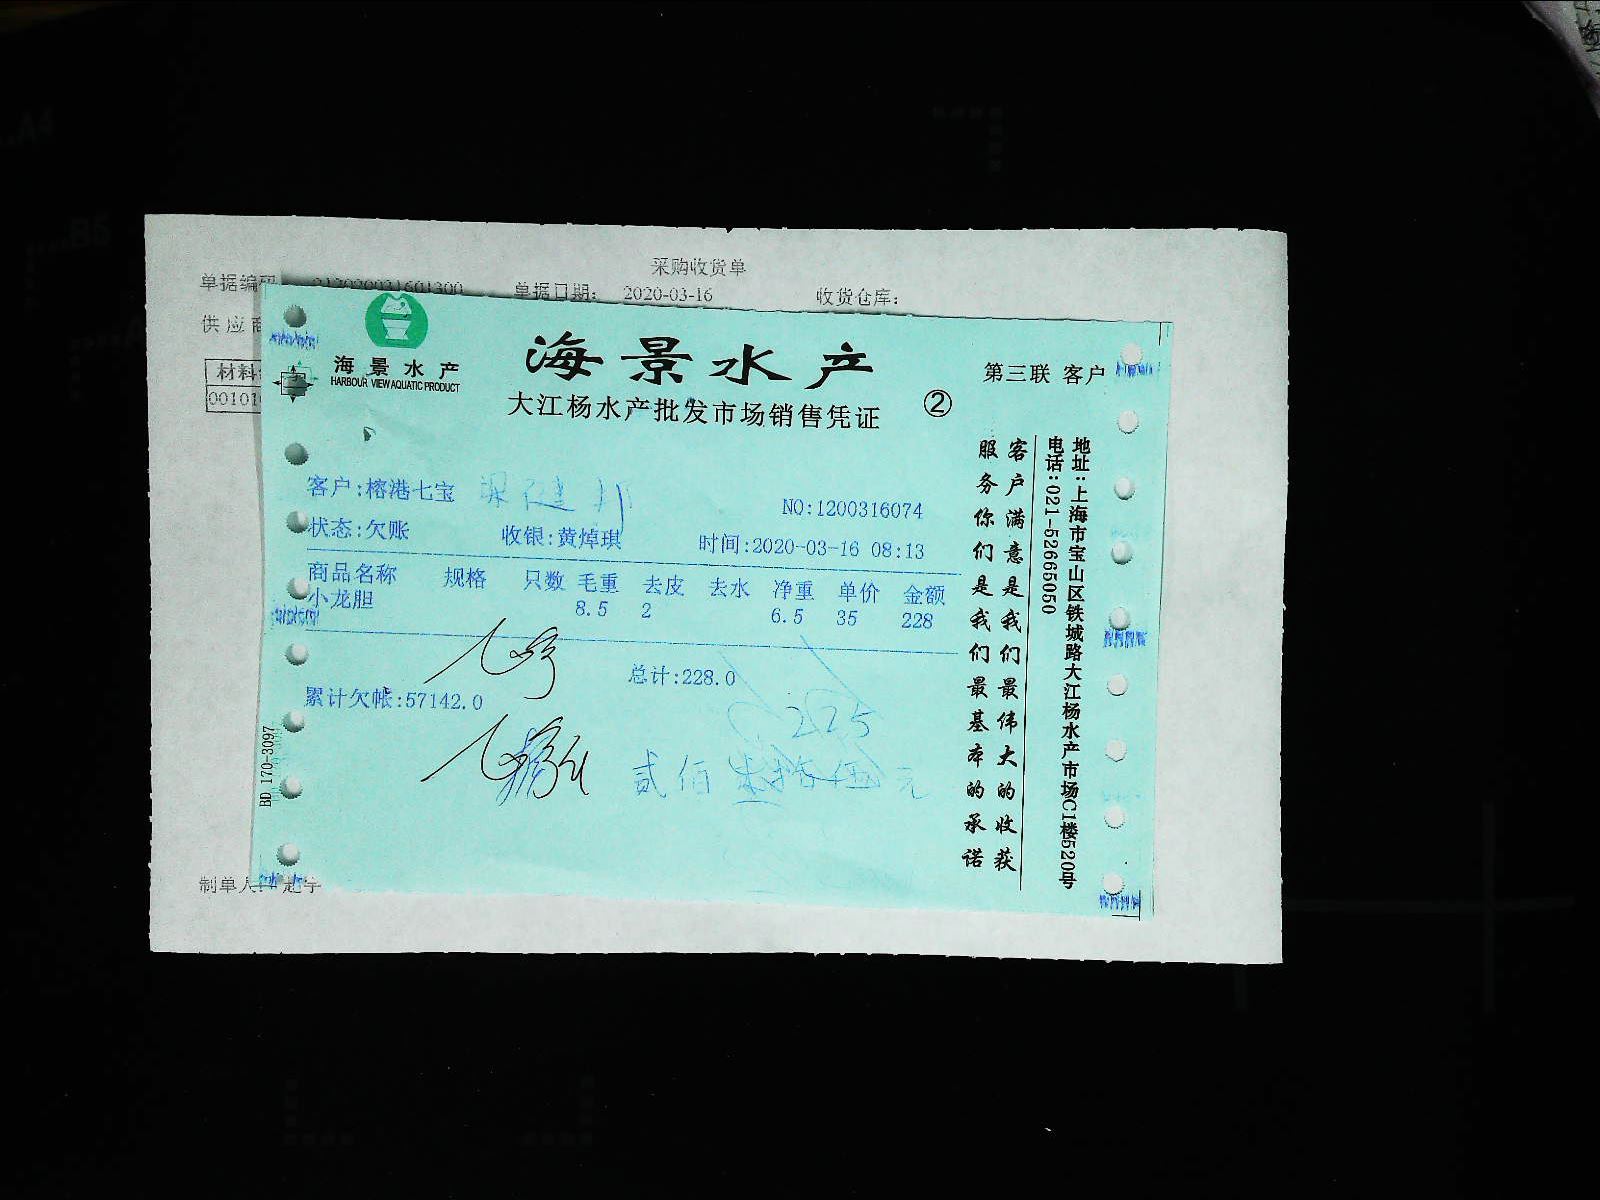 采购收货单
单据日期： 2020-03-16 收货仓库：
供应商
材料
00101
海景水产
HARBOUR VIEW AQUATIC PRODUCT
海景水产
大江杨水产批发市场销售凭证
②
第三联 客户
客户:榕港七宝
NO:1200316074
状态:欠账 收银:黄焯琪 时间:2020-03-16 08:13
商品名称 规格 只数 毛重 去皮 去水 净重 单价 金额
小龙胆 8.5 2 6.5 35 228
总计:228.0
累计欠帐:57142.0
225
贰佰 元
BD 170-3097
客户满意是我们最伟大的收获
服务你们是我们最基本的承诺
地址:上海市宝山区铁城路大江杨水产市场C1楼520号
电话:021-52665050
制单人: